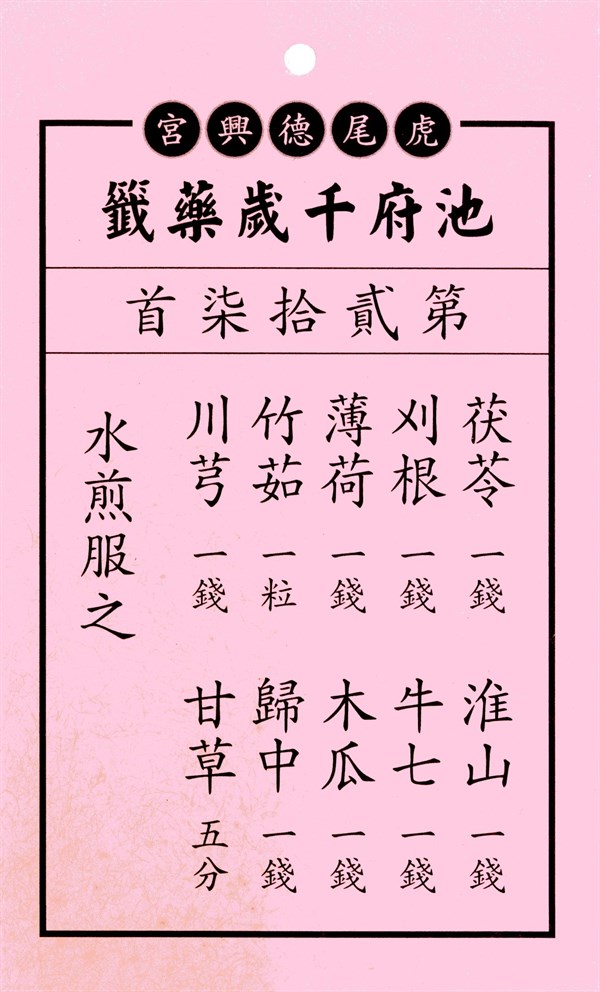 虎尾德興宮
池府千歲藥籤
第貳拾柒首
茯苓 一錢 淮山 一錢
刈根 一錢 牛七 一錢
薄荷 一錢 木瓜 一錢
竹茹 一粒 歸中 一錢
川芎 一錢 甘草 五分
水煎服之